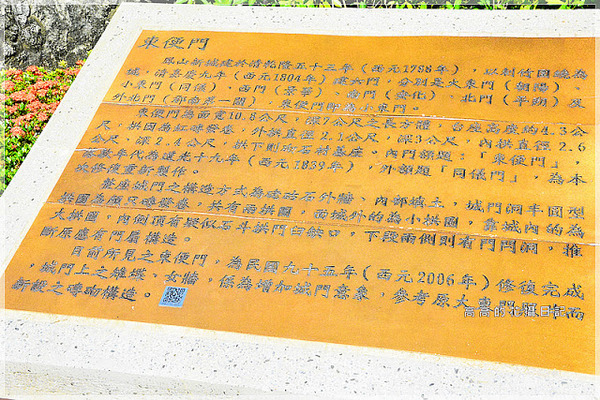 東便門
鳳山新城建於清乾隆五十三年(西元1788年),以刺竹圍繞為
城,清嘉慶九年(西元1804年)建六門,分別是大東門(朝陽)、
小東門(同儀)、西門(景華)、南門(安化)、北門(平朔)及
外北門(郡南第一關),東便門即為小東門。
東便門為面寬10.8公尺,深7公尺之長方體,台座高度約4.3公
尺,拱圈為紅磚發卷,外拱直徑2.1公尺,深3公尺,內拱直徑2.6
公尺,深2.4公尺,拱下則砱石精基座。內門額題:「東便門」,
年代為道光十九年(西元1839年),外額題「同儀門」,為本
次修復重新製作。
臺座城門之構造方式為咾咕石外牆、內部填土,城門洞半圓型
拱圈為紅磚發卷,共有兩拱圈,面城外的為小拱圈,靠城內的為
大拱圈,內側頂有疑似石斗拱門臼缺口,下段兩側則有門閂洞,推
斷原應有門扇構造。
目前所見之東便門,為民國九十五年(西元2006年)修復完成
,城門上之雉堞、女牆,係為增加城門意象,參考原大東門
新設之磚砌構造。
高高的地理日記